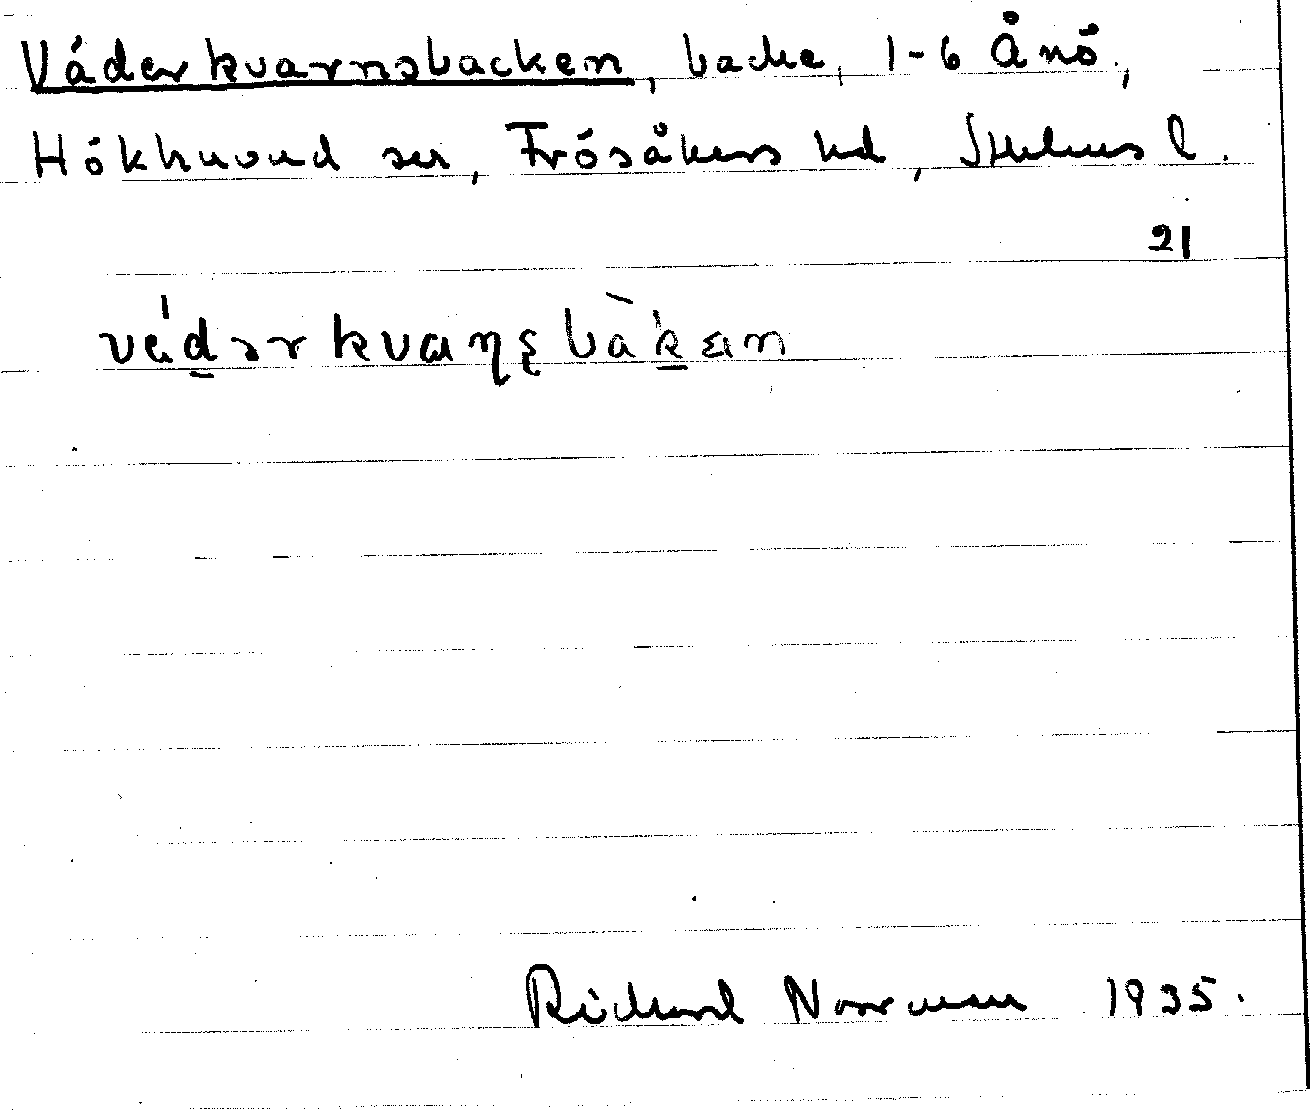 Väderkvarnsbacken, backe, 1-6 Ånö.,
Hökhuvud sn, Frösåkers hd, Sthlms l.
21
vä́dərkvaɳʂbàkən
Richard Norrman 1935.